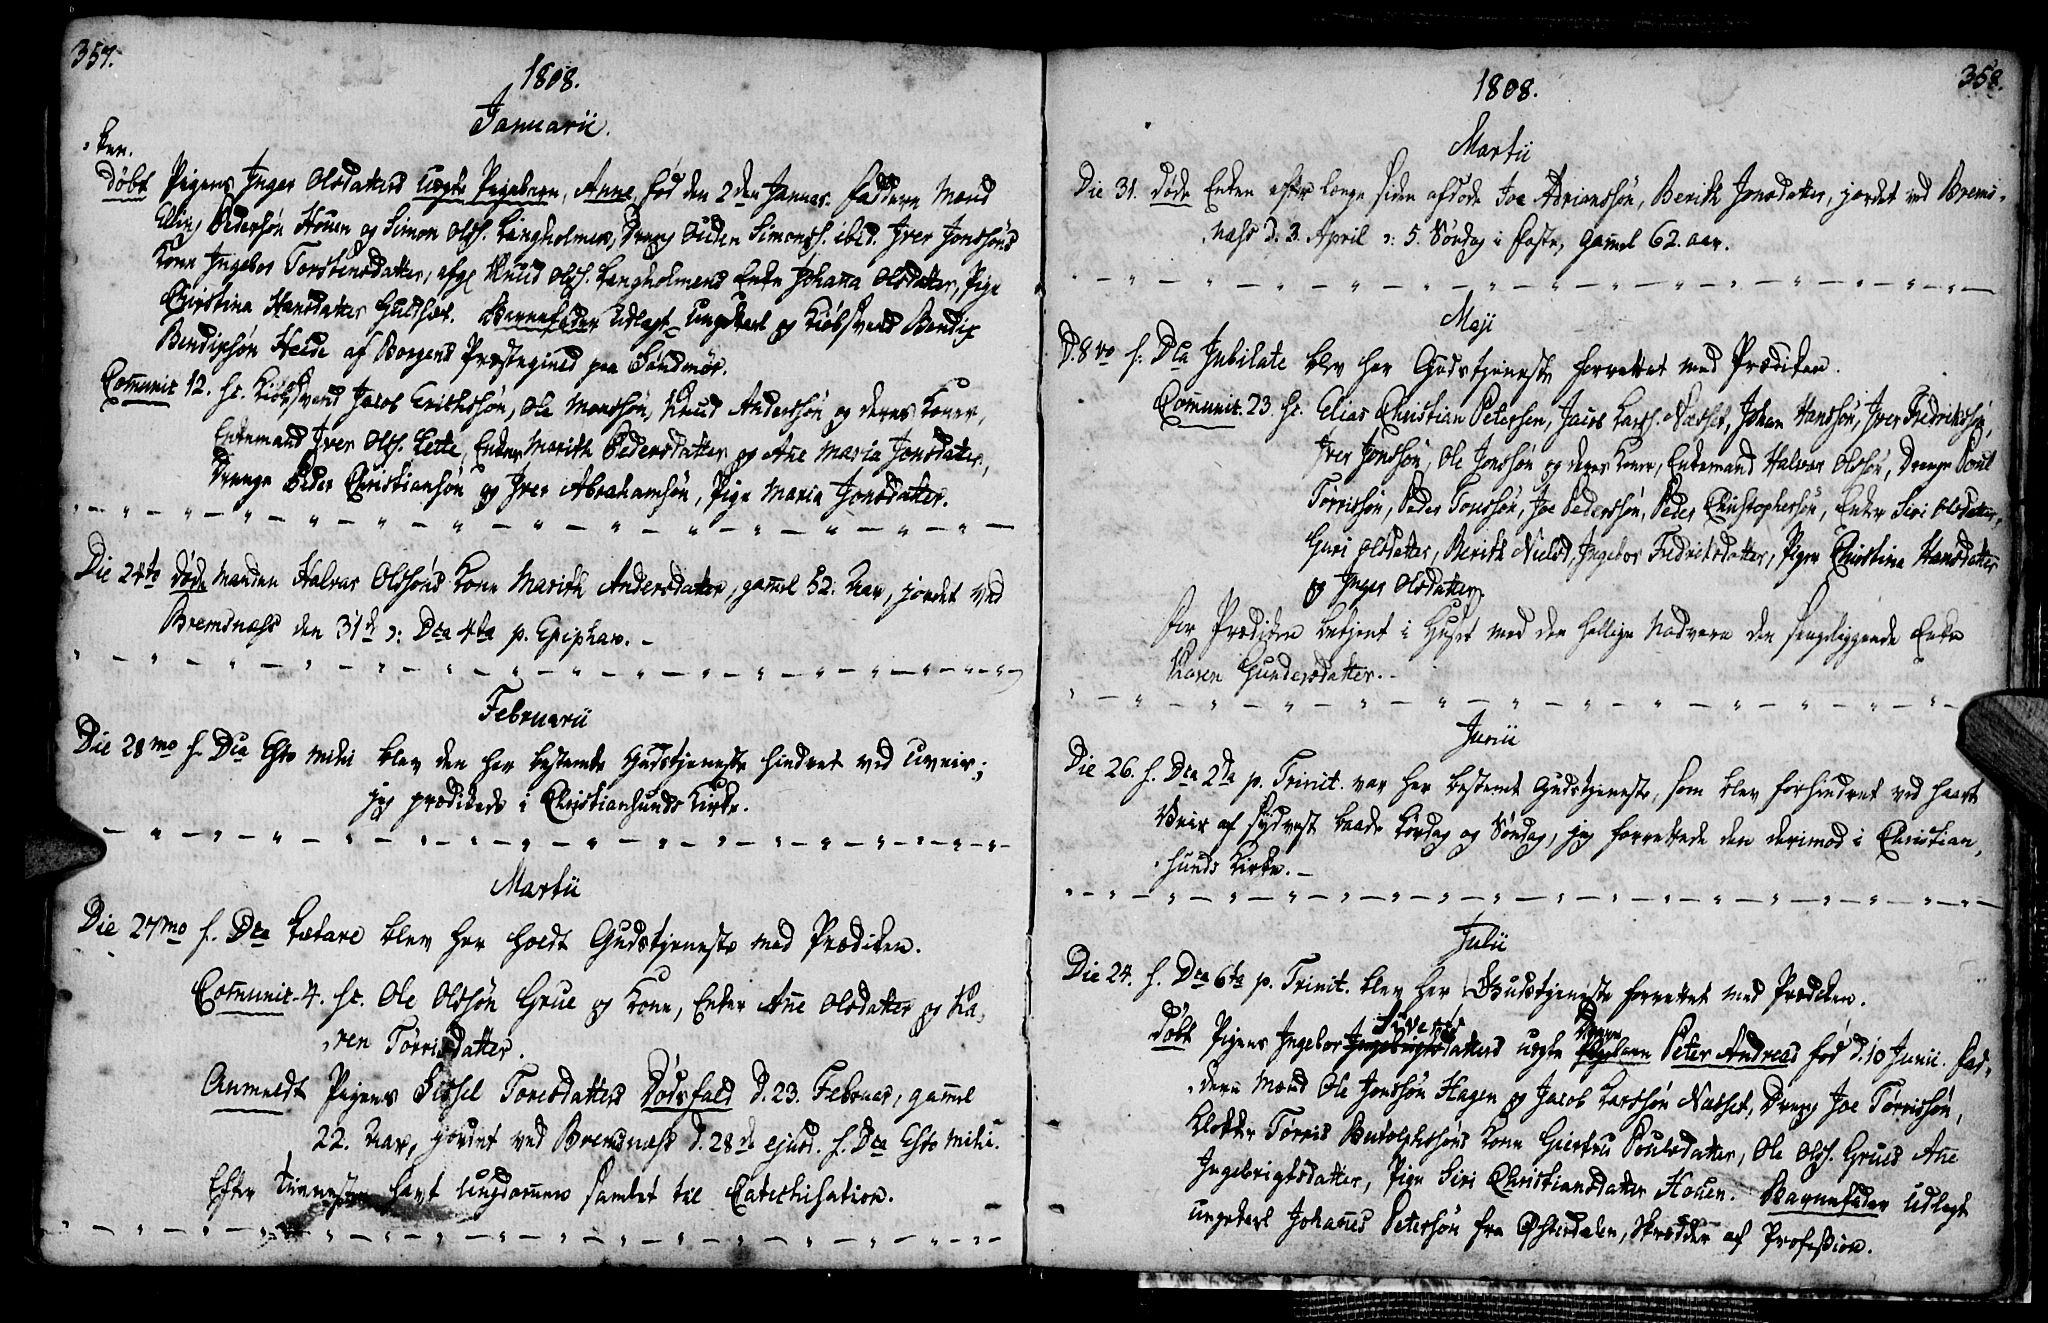 357.
1808.
Januarii.
"ken.
Døbt Pigens Inger Olsdatters uægte Pigebarn, Anne, fød den 2den Januar. Faddere Mænd
Elling Pedersøn Houen og Simon Ols. Langholmen, Dreng Ouden Simons. ibid. Iver Jonssøns
Kone Ingebor Torstensdatter, afg. Knud Ols. Langholmens Enke Johanna Olsdatter, Pige
Christina Hansdatter Huldset. Barnefader Udlagt Ungkarl og Kiøbsvend Bendix
Bendixsøn Heide af Borgens Præstegield paa Søndmør.
Comunic. 12. sc. Kiøbsvend Jacob Erichssøn, Ole Monssøn, Knud Anderssøn og deres Koner,
Enkemand Iver Ols. Lette, Enker Marith Pedersdatter og Ane Maria Jonsdatter,
Drenge Peder Christiansøn og Iver Abrahamsøn, Pige Maria Jonsdatter.
Die 24to døde Manden Halvar Olssøns Kone Marith Andersdatter, gamel 52. Aar, jordet ved
Bremsnæss den 31te ɔ: Dca 4ta p. Epiphan.
Februarii
Die 28mo s. Dca Esto mihi blev den her bestemte Gudstjeneste hindret ved Uveir;
jeg prædikede i Christiansunds Kirke.
Martii
Die 27mo s. Dca Lætare blev her holdt Gudstjeneste med Prædiken.
Comunic. 4. sc. Ole Olssøn Grue og Kone, Enker Ane Olsdatter og Ka-
"ren Tørrisdatter.
Anmeldt Pigens Sissel Toresdatters Dødsfald d. 23. Februar, gamel
22. Aar, jordet ved Bremsnæss d. 28de ejusd. s. Dca Esto mihi.
Efter Tienesten havt Ungdomen samlet til Catechisation.
358.
1808.
Martii
Die 31. døde Enken efter længe siden afdøde Joe Adrianssøn, Berith Jonsdatter, jordet ved Brems-
"næss d. 3. April ɔ: 5. Søndag i Faste, gamel 62. aar.
Maji
D. 8vo s. Dca Jubilate blev her Gudstjeneste forrettet med Prædiken.
Comunic. 23. sc. Elias Christian Petersen, Jacob Larss. Nasset, Johan Hanssøn, Iver Fredrikssøn,
Iver Jonssøn, Ole Jonssøn og deres Koner, Enkemand Halvar Olssøn, Drenge Poul
Tørrissøn, Peder Toressøn, Joe Pederssøn, Peder Christophersøn, Enker Siri Olsdatter,
Guri Olsdatter, Berith Nielsd., Ingebor Fredriksdatter, Piger Christina Hansdatter
og Inger Olsdatter.
Før Prædiken betjent i Huset med den hellige Nadvere den sengeliggende Enke
Karen Gundersdatter.
Junii
Die 26. s. Dca 2da p. Trinit. var her bestemt Gudstjeneste, som blev forhindret ved haardt
Veir af Sydvest baade Lørdag og Søndag, jeg forrettede den derimod i Christian-
"sunds Kirke.
Julii
Die 24. s. Dca 6ta p. Trinit. blev her Gudstjeneste forrettet med Prædiken.
Døbt Pigens Ingebor Ingebrigtsdatters Siverts uægte Pigebarn Drenge Peter Andreas fød d. 10 Junii. Fad-
"dere Mænd Ole Jonssøn Hagen og Jacob Larssøn Nasset, Dreng Joe Tørrissøn,
Klokker Tørris Budolphssøns Kone Giertru Poulsdatter, Ole Ols. Grues Ane
Ingebrigtsdatter, Pige Siri Christiansdatter Houen. Barnefader Udlagt
Ungkarl Johannes Petersøn fra Østerdalen, Skrædder af Profession.